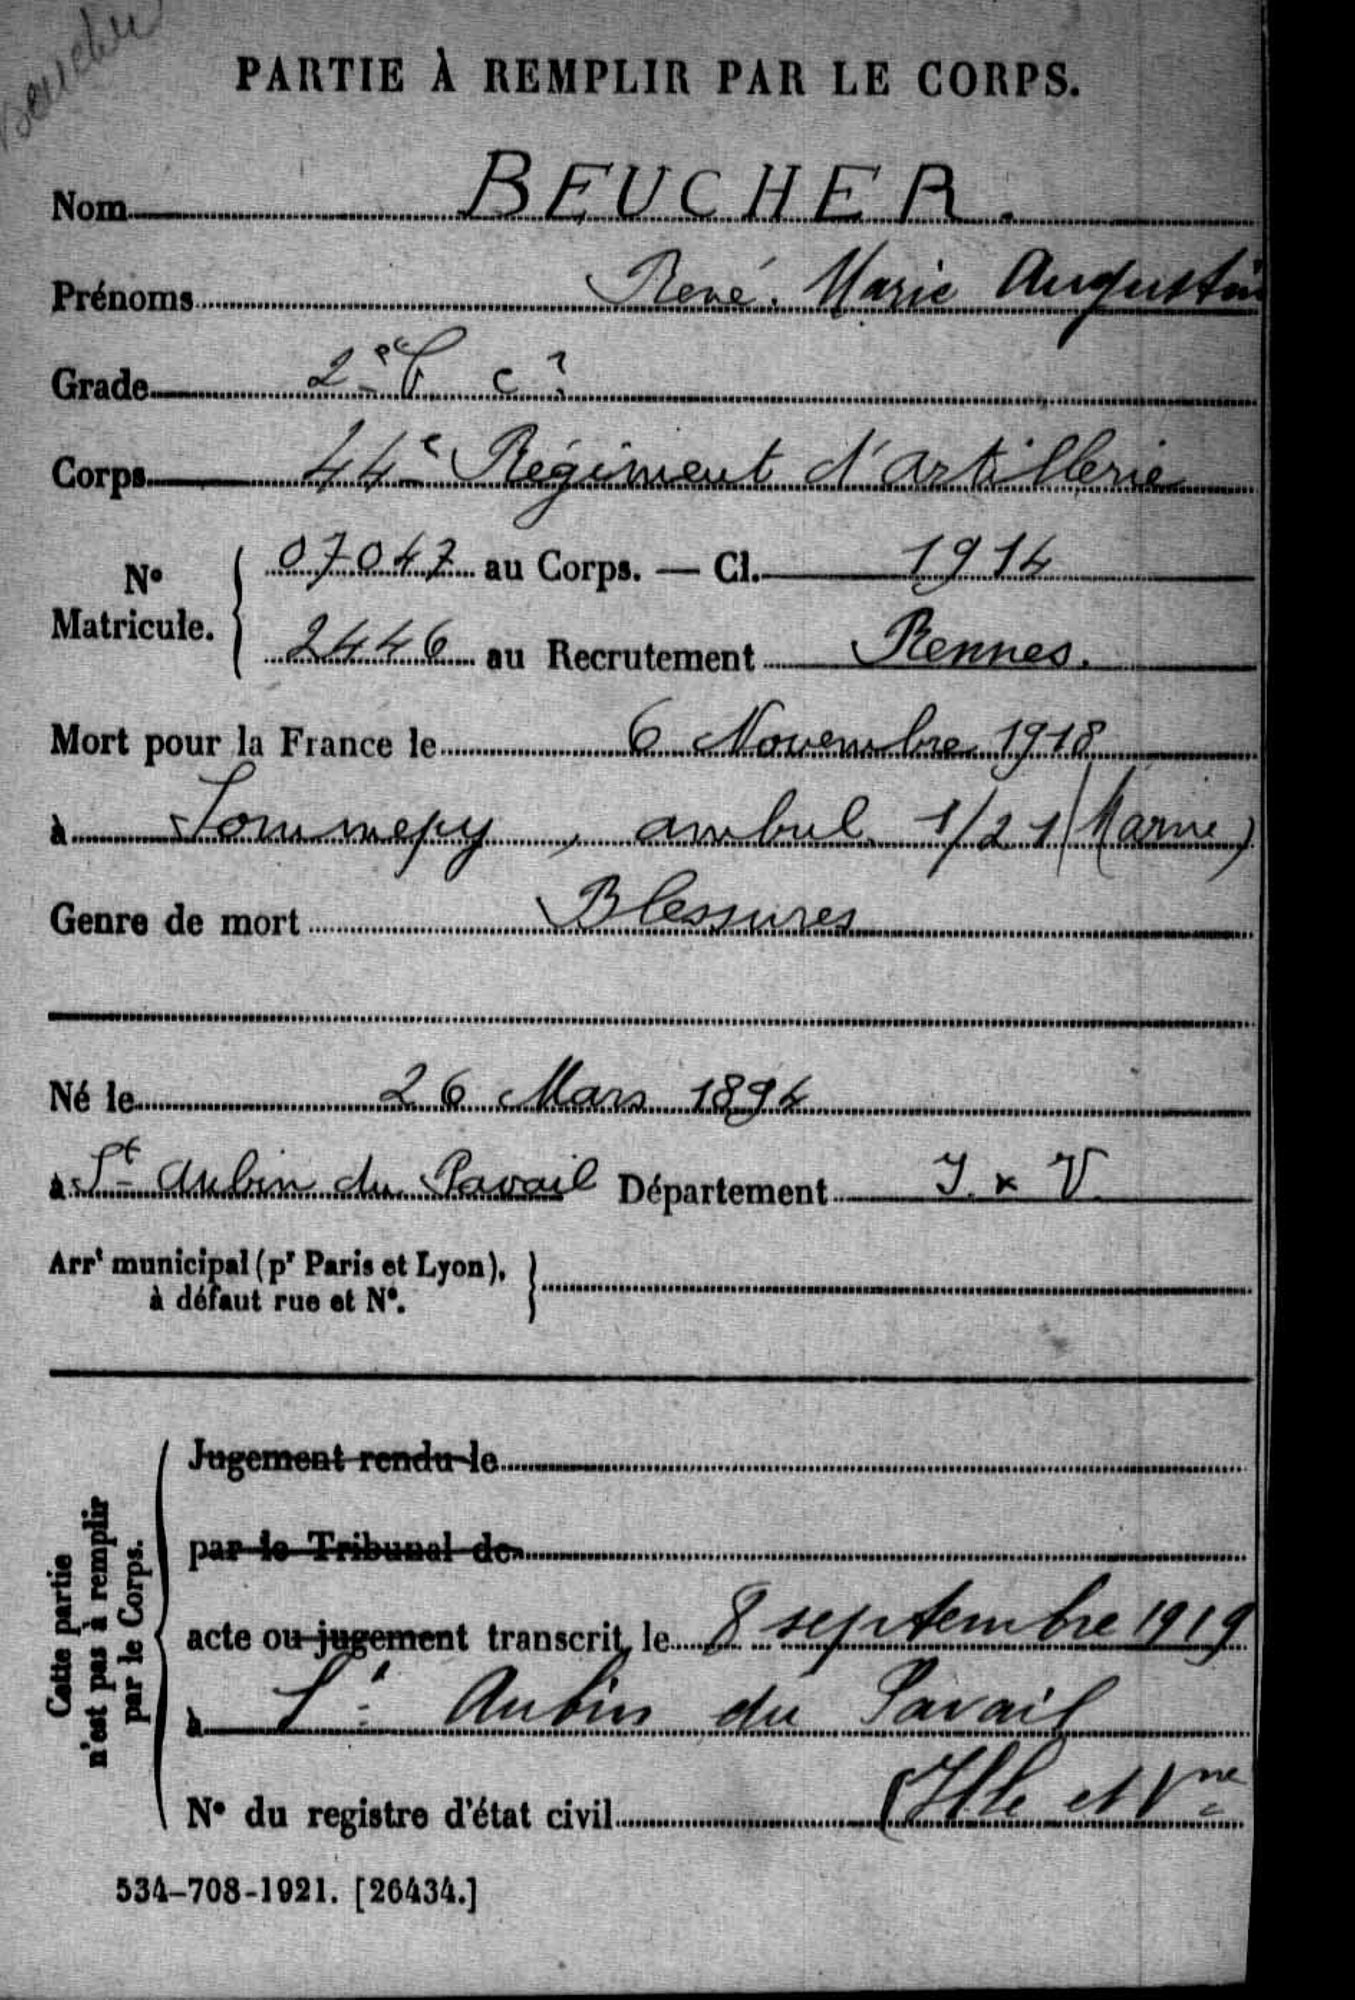 Beucher
PARTIE À REMPLIR PAR LE CORPS.
Nom BEUCHER.
Prénoms René. Marie Augustin
Grade 2e C c?
Corps 44e Régiment d'artillerie
No Matricule. 07047 au Corps. — Cl. 1914
2446 au Recrutement Rennes.
Mort pour la France le 6 Novembre 1918
à Sommepy, ambul. 1/21 (Marne)
Genre de mort Blessures
Né le 26 Mars 1894
à St Aubin du Pavail Département I. x V.
Arrt municipal (pr Paris et Lyon),
à défaut rue et No.
Cette partie
n'est pas à remplir
par le Corps.
Jugement rendu le
par le Tribunal de
acte ou jugement transcrit le 8 septembre 1919
à St Aubin du Pavail
No du registre d'état civil (Ille et Vne
534-708-1921. [26434.]